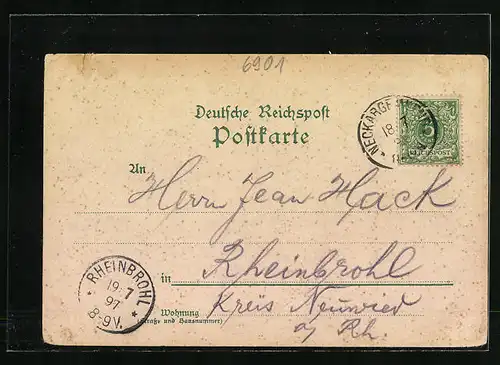 6901
Deutsche Reichspost
Postkarte
18. 7
REICHSPOST
An
Herrn Jean Hack
RHEINBROHL
19. 7
97
8-9V.
in Rheinbrohl
Wohnung
(Straße und Hausnummer)
Kreis Neuwied
a/ Rh.